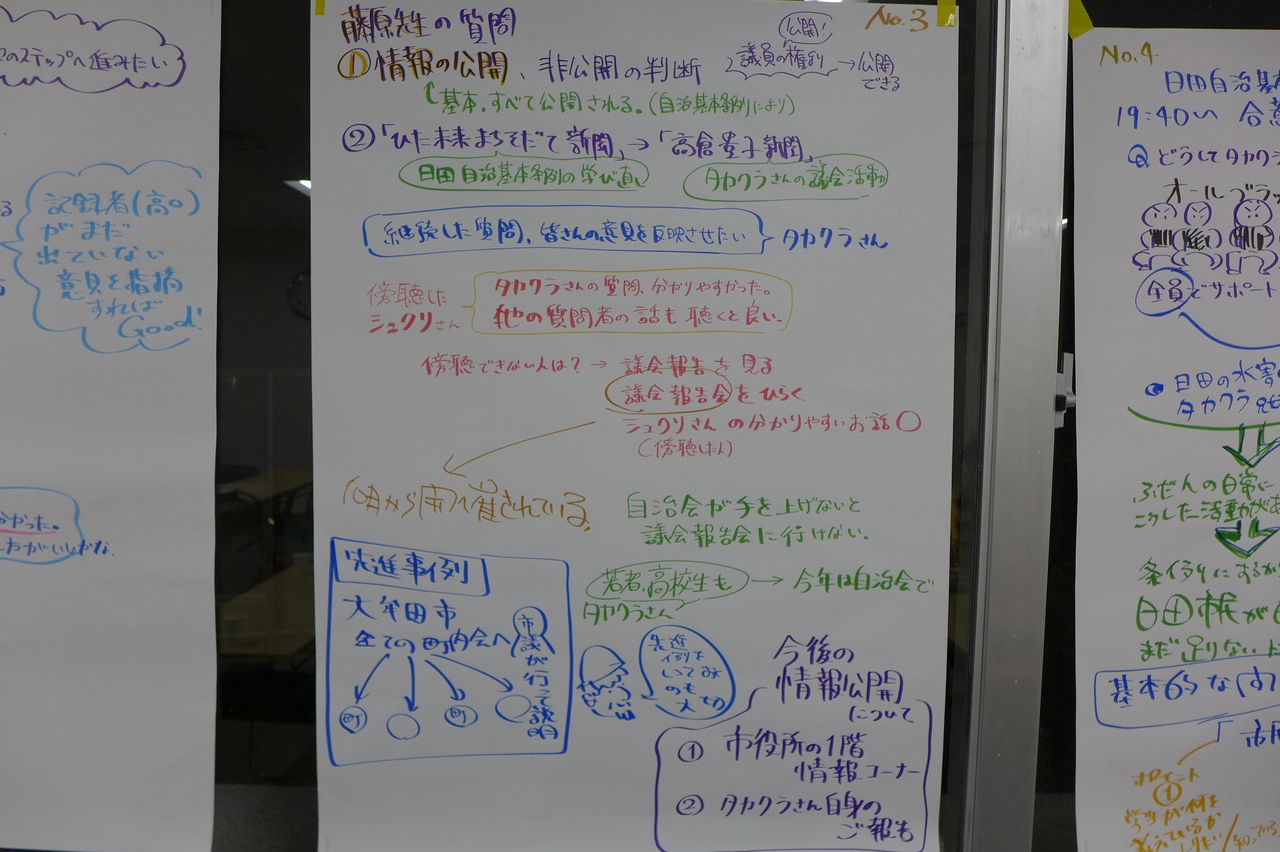 のステップへ進みたい
記録者(高○)
がまだ
出ていない
意見を指摘
すれば
Good!
かった。
No.3
藤原先生の質問
①情報の公開、非公開の判断
公開!
議員の権利→公開
できる
基本、すべて公開される。(自治基本条例により)
②「ひた未来まちそだて新聞」→「高倉貴子新聞」
日田自治基本条例の学び直し
タカクラさんの議会活動
継続した質問、皆さんの意見を反映させたい
タカクラさん
傍聴した
シュクリさん
タカクラさんの質問、分かりやすかった。
他の質問者の話も聴くと良い。
傍聴できない人は?→議会報告を見る
議会報告会をひらく
シュクリさんの分かりやすいお話○
(傍聴した人)
から開催されている。
自治会が手を上げないと
議会報告会に行けない。
若者、高校生も→今年は自治会で
タカクラさん
先進事例
大牟田市
全ての町内会へ市議が行って説明
町
町
先進
例を
大切
今後の
情報公開
について
①市役所の1階
情報コーナー
②タカクラさん自身の
ご報も
No.4
日田自治基
19:40〜
Qどうしてタカクラ
オールブラッ
全員でサポート
日田の水害
タカクラ
ふだんの日常に
こうした活動が
条例にするか
日田市民が
まだ足りない
基本的な
ポイント
①